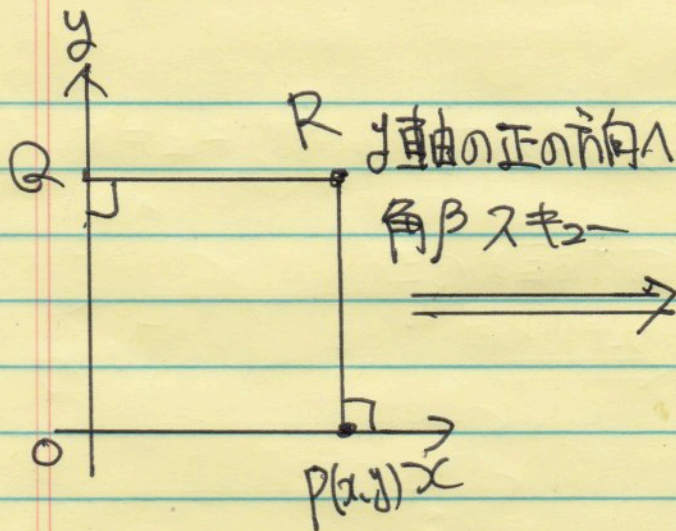 y
R
y軸の正の方向へ
Q
角β スキュー
O
P(x,y) x